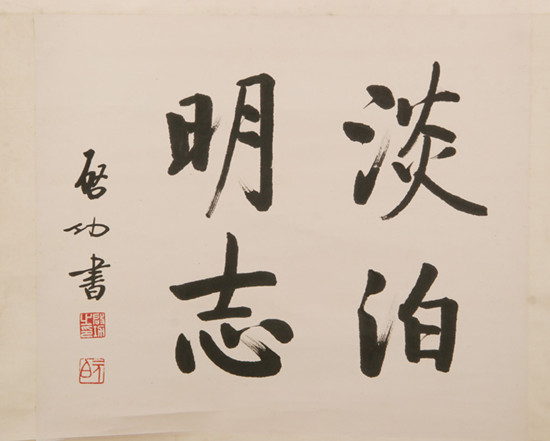 淡泊
明志
启功書